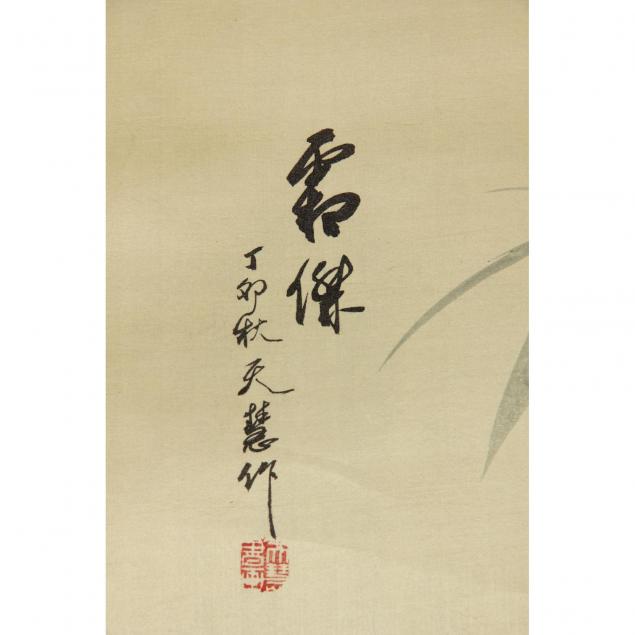 霜傑
丁卯秋天慧作